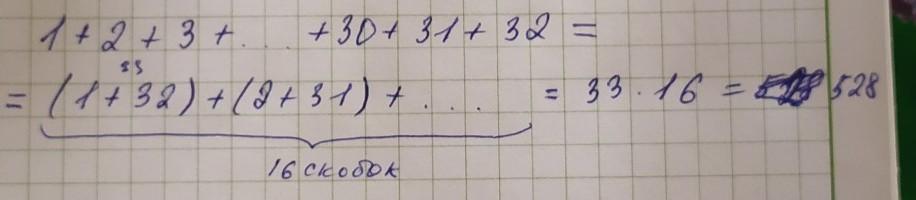 1 + 2 + 3 + . . . + 30 + 31 + 32 =
33
= (1 + 32) + (2 + 31) + . . . . = 33 · 16 = 528
16 скобок